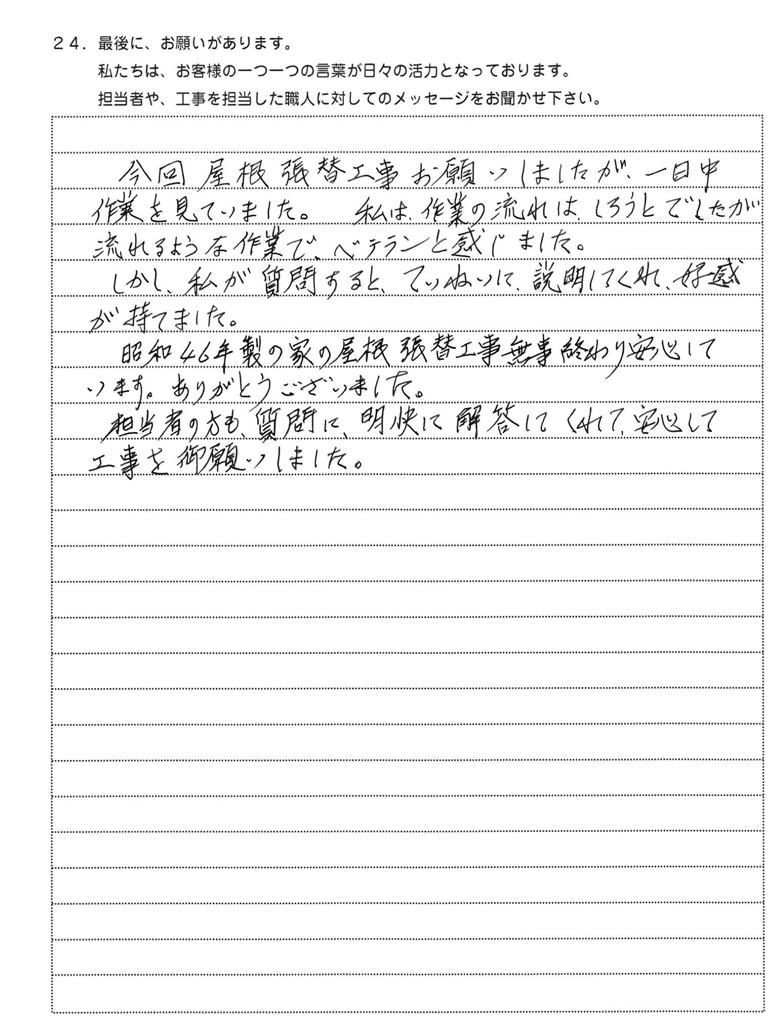 ２４．最後に、お願いがあります。
私たちは、お客様の一つ一つの言葉が日々の活力となっております。
担当者や、工事を担当した職人に対してのメッセージをお聞かせ下さい。
今回屋根張替工事お願いしましたが、一日中
作業を見ていました。 私は、作業の流れは、しろうとでしたが
流れるような作業で、ベテランと感じました。
しかし、私が質問すると、ていねいに、説明してくれ、好感
が持てました。
昭和46年製の家の屋根張替工事無事終わり安心して
います。ありがとうございました。
担当者の方も、質問に、明快に解答してくれて、安心して
工事を御願いしました。